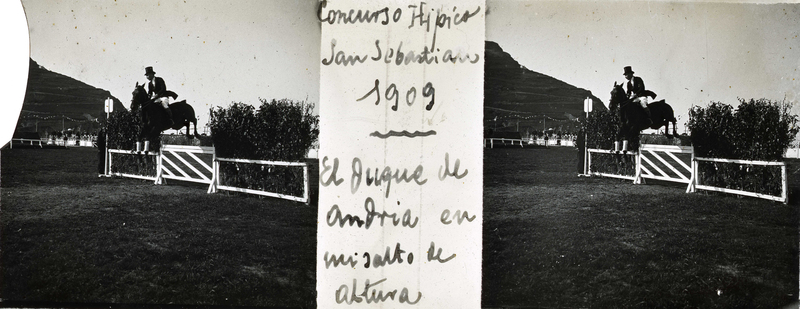 Concurso Hipico
San Sebastian
1909
El Duque de
Andria en
un salto de
altura